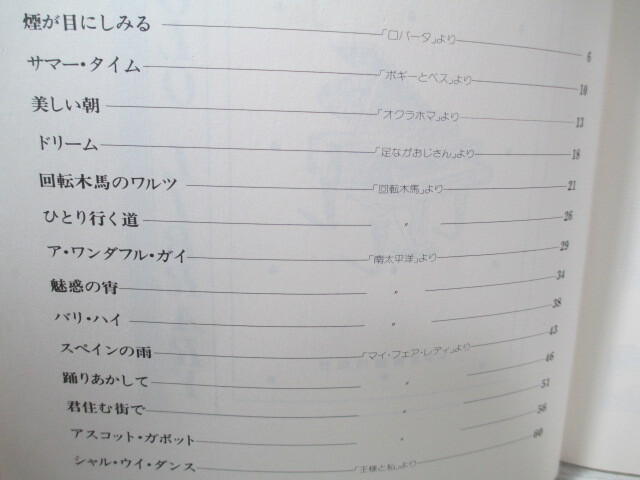 煙が目にしみる 「ロバータ」より 6
サマー・タイム 「ポギーとベス」より 10
美しい朝 「オクラホマ」より 13
ドリーム 「足ながおじさん」より 18
回転木馬のワルツ 「回転木馬」より 21
ひとり行く道 〃 26
ア・ワンダフル・ガイ 「南太平洋」より 29
魅惑の宵 〃 34
バリ・ハイ 〃 38
スペインの雨 「マイ・フェア・レディ」より 43
踊りあかして 〃 46
君住む街で 〃 51
アスコット・ガボット 〃 56
シャル・ウイ・ダンス 「王様と私」より 60